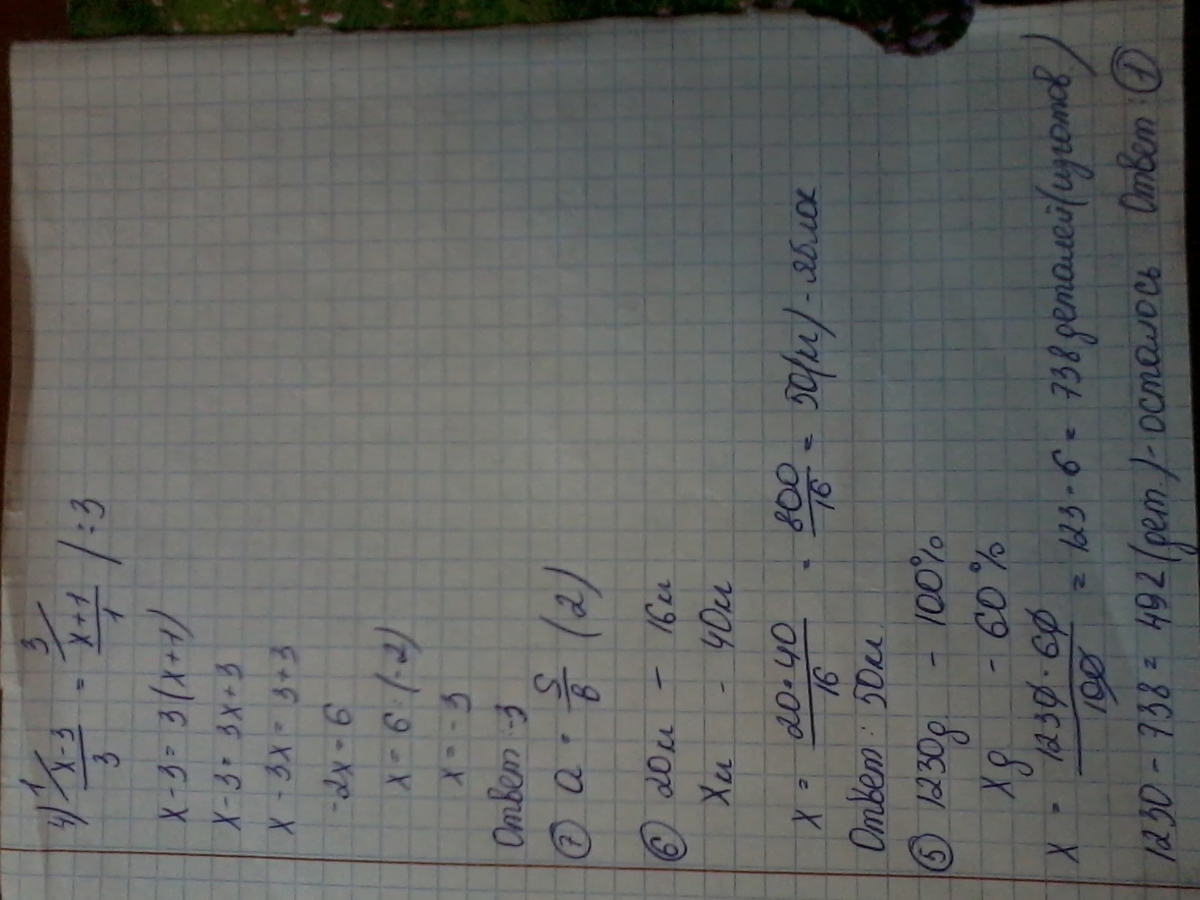 4) x-3/3 ¹ = x+1/1 ³ / :3
x-3=3(x+1)
x-3=3x+3
x-3x=3+3
-2x=6
x=6:(-2)
x=-3
Ответ:-3
⑦ a=S/в (2)
⑥ 20м - 16м
Xм - 40м
X = 20·40/16 = 800/16 = 50(м)-яблок
Ответ: 50м.
⑤ 1230д - 100%
Xд - 60%
X = 1230·60/100 = 123·6 = 738 деталей(изготов)
1230-738=492(дет.)-осталось Ответ:①